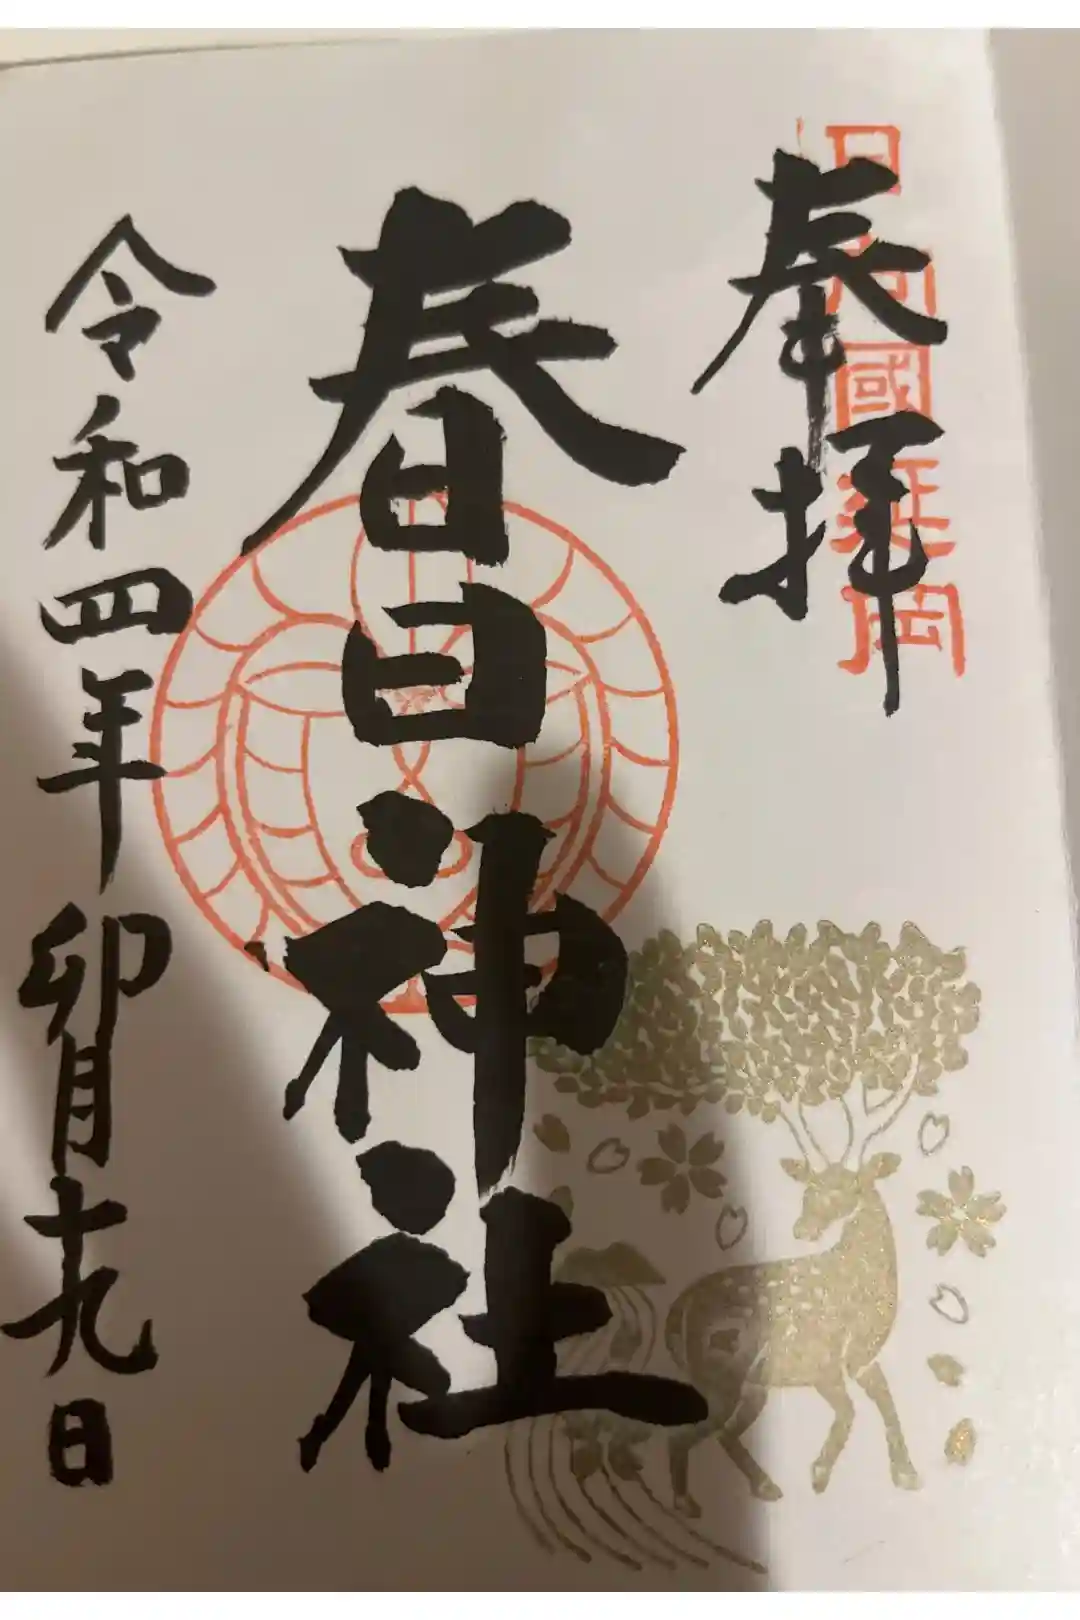 奉拝
日向國延岡
春日神社
令和四年卯月十九日